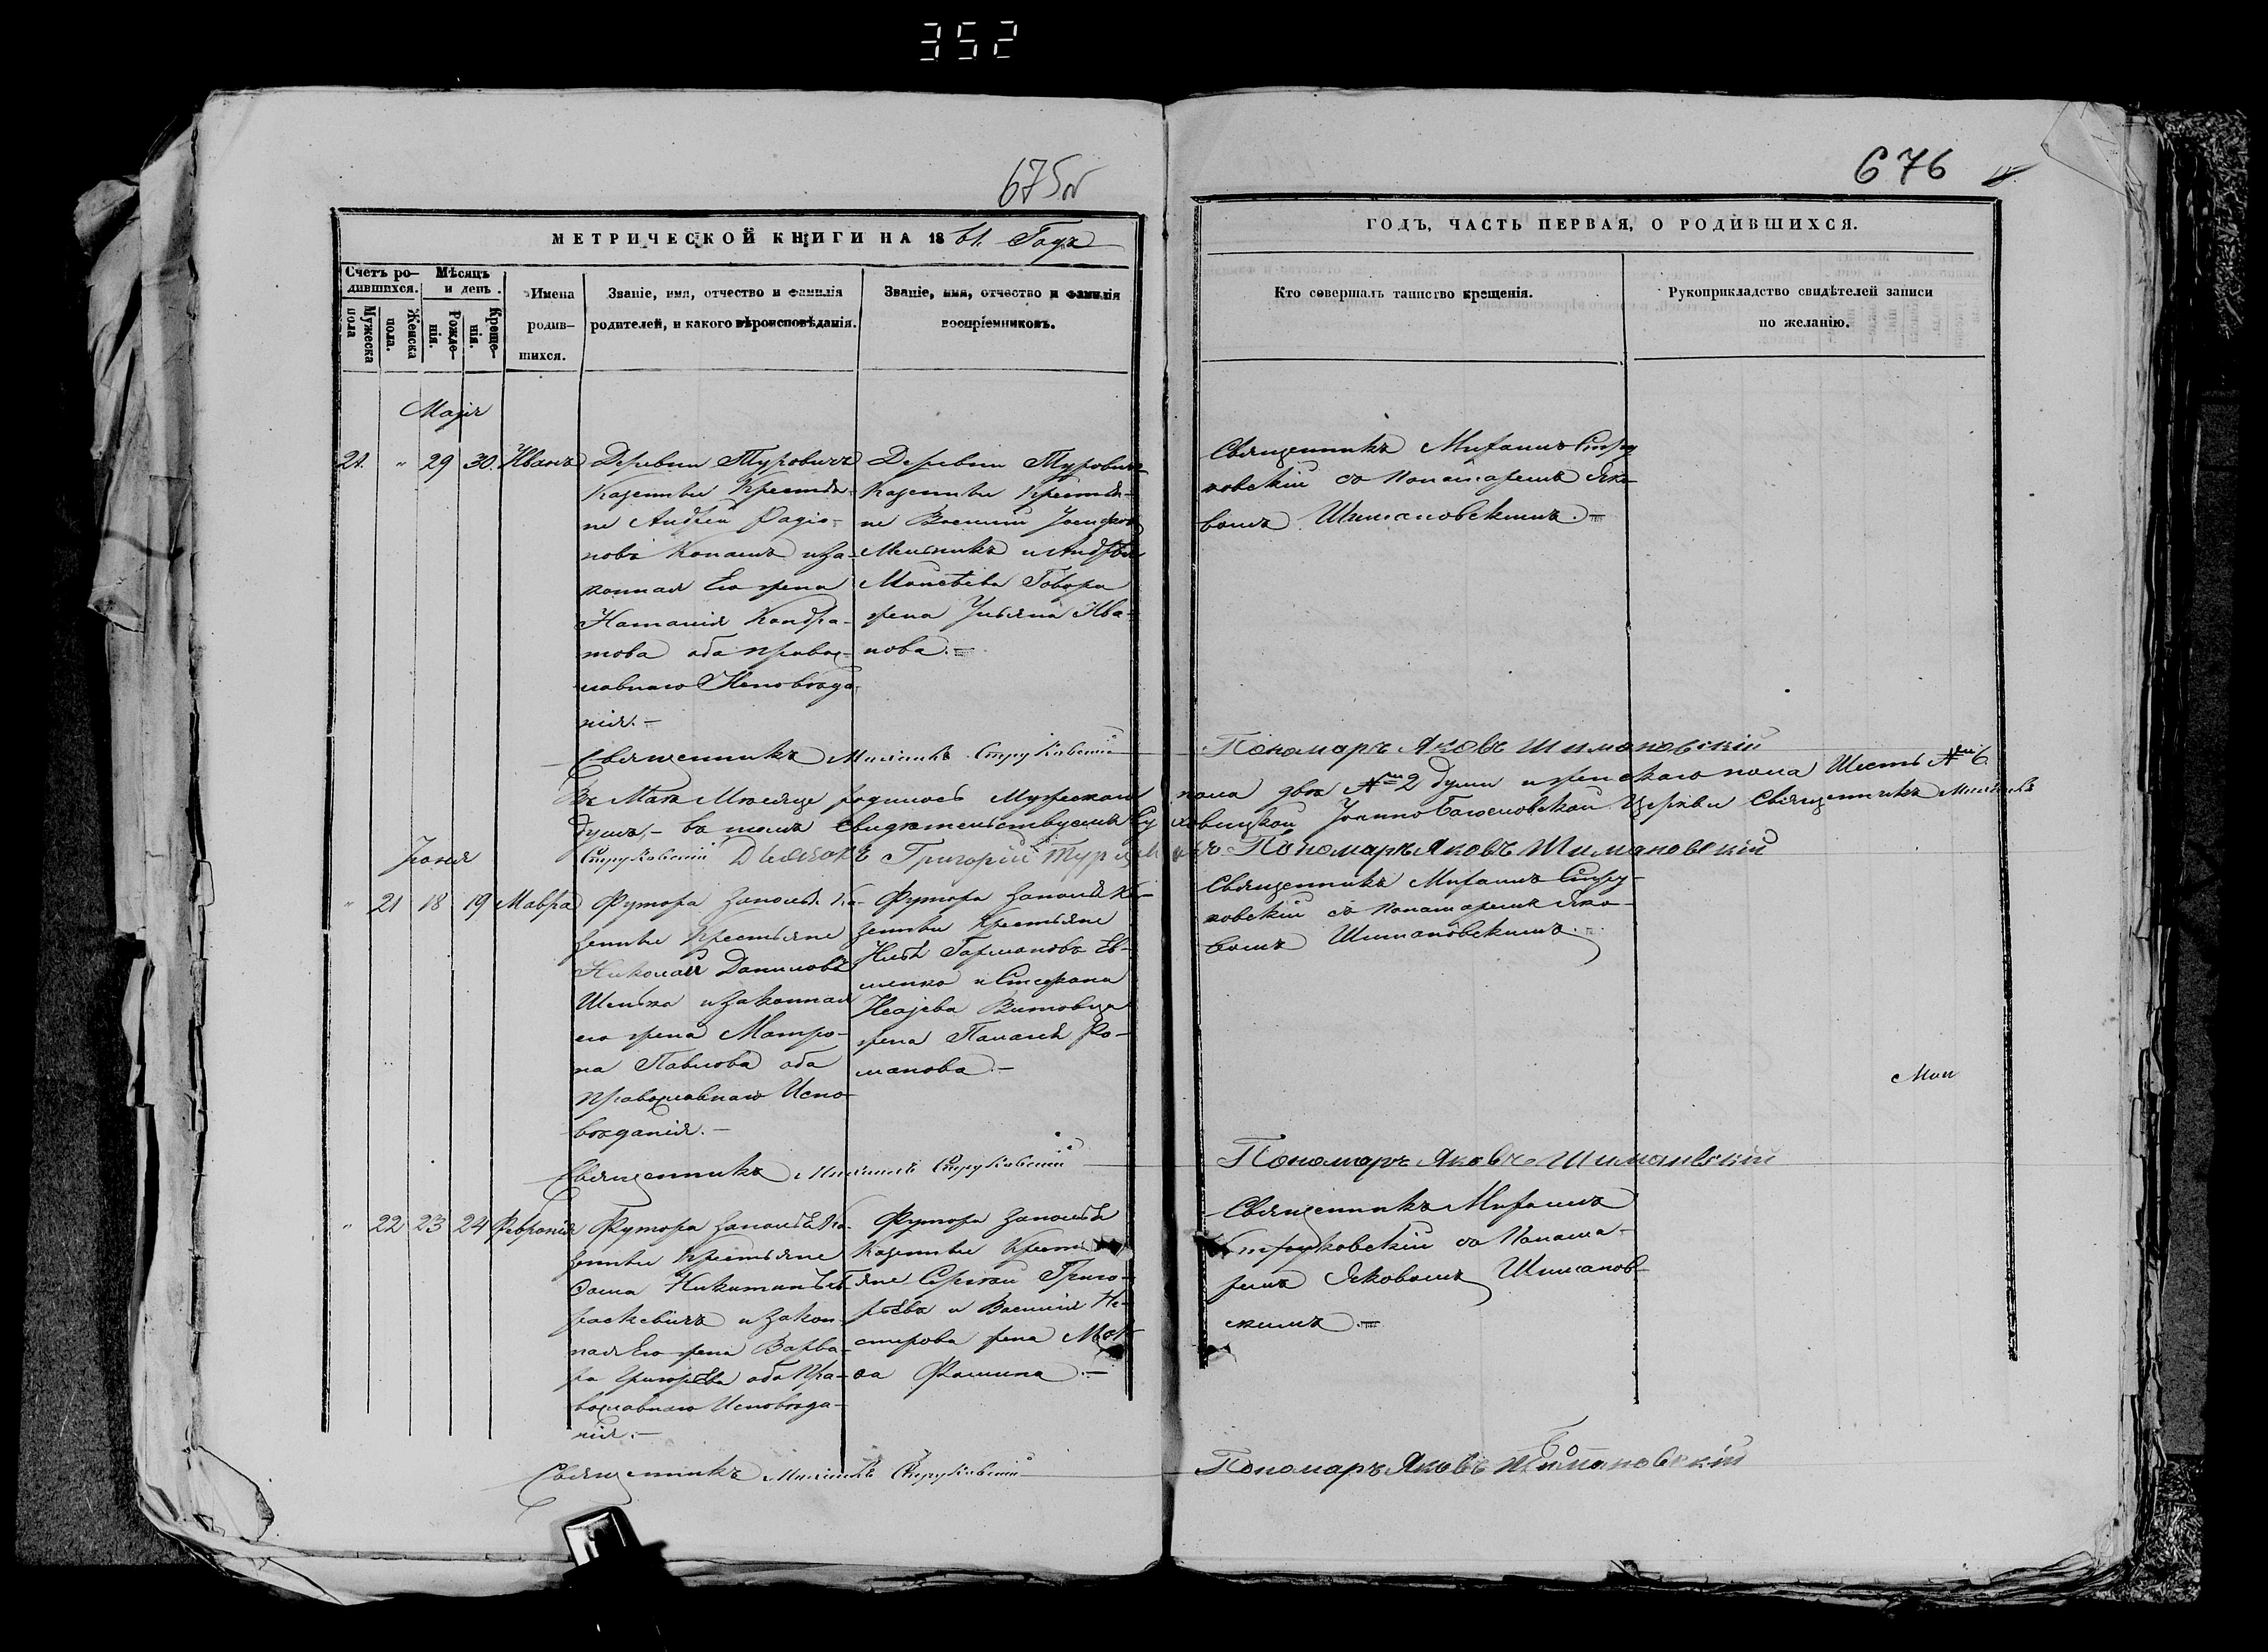 352
675об
676
МЕТРИЧЕСКОЙ КНИГИ НА 1861. Годъ
ГОДЪ, ЧАСТЬ ПЕРВАЯ, О РОДИВШИХСЯ.
Счетъ ро-
дившихся.
Мужеска
пола
Женска
пола.
Мѣсяцъ
и день.
Рожде-
нія.
Креще-
нія.
Имена
родив-
шихся.
Званіе, имя, отчество и фамилія
родителей, и какого вѣроисповѣданія.
Званіе, имя, отчество и фамилія
воспріемниковъ.
Кто совершалъ таинство крещенія.
Рукоприкладство свидѣтелей записи
по желанію.
Маія
21. " 29 30. Иванъ
Деревни Туровичъ
Казенные Крестья-
не Андрей Радіо-
новъ Копачъ и за-
конная Его жена
Наталія Кондра-
това оба правос-
лавнаго Исповѣда-
нія.-
Деревни Туровичъ
Казенные Крестья-
не Василій
Мельникъ и Андрея
Моисѣева Говора
жена Ульяна Ива-
нова.-
Священникъ Михаилъ Стру
ковскій съ Понамаремъ Яко-
вомъ Шимановскимъ.-
Священникъ Михаилъ Струковскій
Пономарь Яковъ Шимановскій
Въ Маѣ Мѣсяце родилось Мужескаго пола два № 2 души и женскаго пола Шесть № 6
душъ,- въ томъ свидѣтельствуемъ Іоанно Богословской Церкви Священникъ Михаилъ
Струковскій Дьячокъ Григорій Пономарь Яковъ Шимановскій
Іюня
" 21 18 19 Мавра
Футора Заполья Ка-
зенные Крестьяне
Николай Даниловъ
и законная
его жена Матро-
на Павлова оба
православнаго Испо-
вѣданія.-
Футора Заполья Ка-
зенные Крестьяне
и Стефана
жена Ро-
манова.-
Священникъ Михаилъ Стру-
ковскій съ Понамаремъ Яко-
вомъ Шимановскимъ.
Священникъ Михаилъ Струковскій
Пономарь Яковъ Шимановскій
" 22 23 24 Февронія
Футора Заполья Ка-
зенные Крестьяне
Фома Никитинъ
и закон-
ная Его жена Варва-
ра Григорьева оба Пра-
вославнаго Исповѣда-
нія.-
Футора Заполья
Казенные Кресть
яне Сергей Григо-
рьевъ и Василія Не-
стерова жена
Фомина.-
Священникъ Михаилъ
Струковскій съ Понама-
ремъ Яковомъ Шиманов-
скимъ.-
Священникъ Михаилъ Струковскій
Пономарь Яковъ Шимановскій